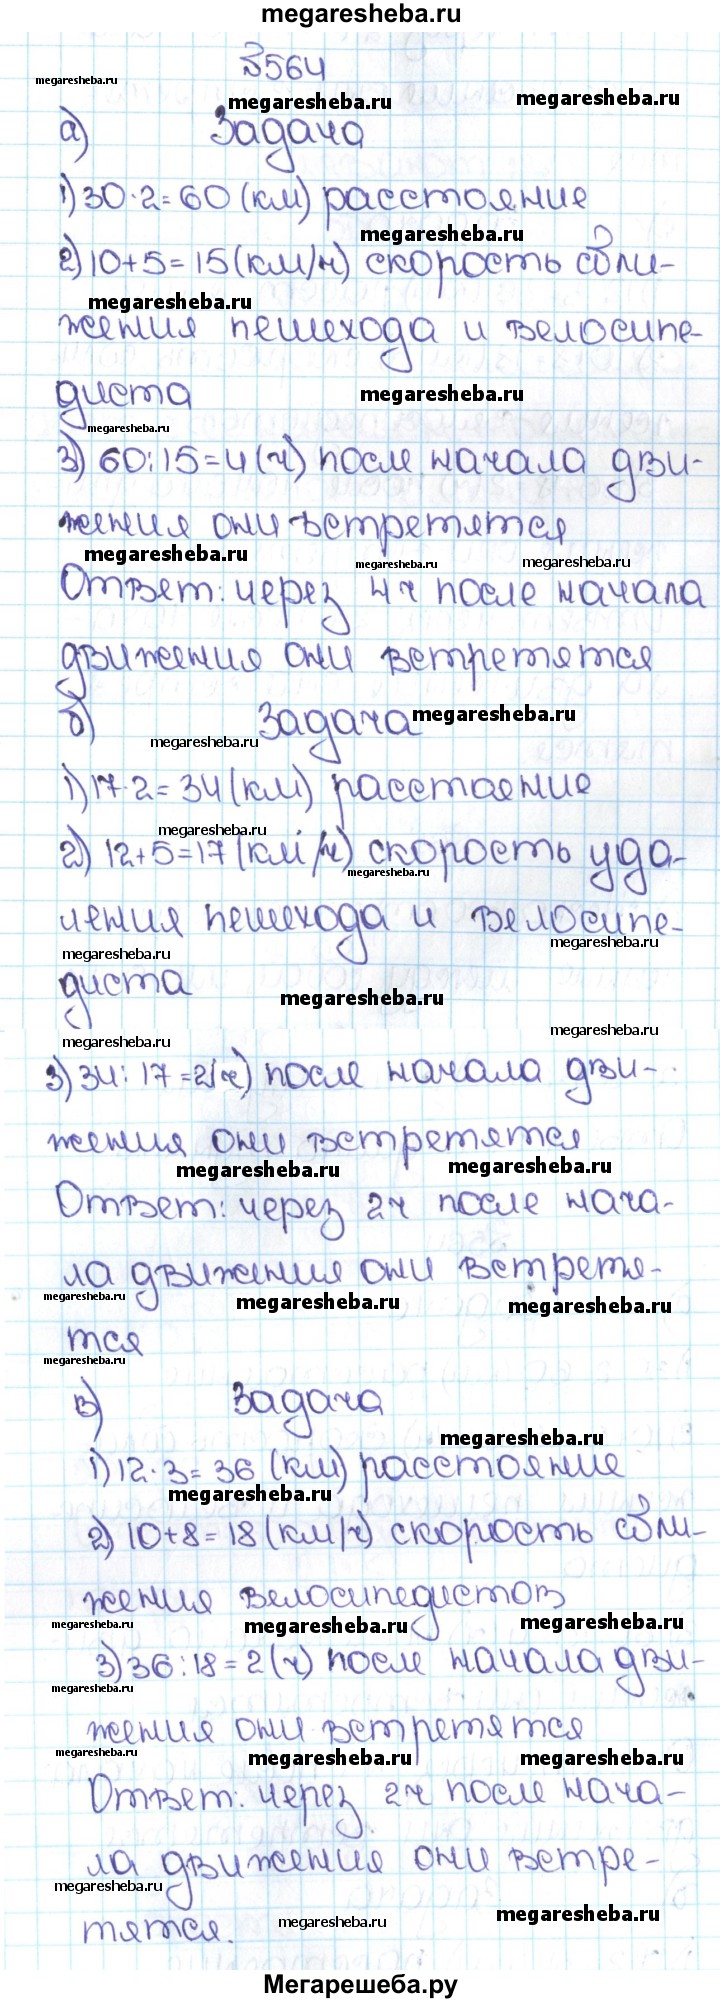 megaresheba.ru
№564
megaresheba.ru
megaresheba.ru
megaresheba.ru
а) Задача
1) 30·2=60 (км) расстояние
megaresheba.ru
2) 10+5=15 (км/ч) скорость сбли-
megaresheba.ru
жения пешехода и велосипе-
диста
megaresheba.ru
megaresheba.ru
3) 60:15=4 (ч) после начала дви-
жения они встретятся
megaresheba.ru
megaresheba.ru
megaresheba.ru
Ответ: через 4ч после начала
движения они встретятся
б) Задача
megaresheba.ru
megaresheba.ru
1) 17·2=34 (км) расстояние
megaresheba.ru
2) 12+5=17 (км/ч) скорость уда-
megaresheba.ru
ления пешехода и велосипе-
megaresheba.ru
megaresheba.ru
диста
megaresheba.ru
megaresheba.ru
megaresheba.ru
3) 34:17=2(ч) после начала дви-
жения они встретятся
megaresheba.ru
megaresheba.ru
Ответ: через 2ч после нача-
ла движения они встретя-
megaresheba.ru
megaresheba.ru
megaresheba.ru
тся
megaresheba.ru
в) Задача
megaresheba.ru
1) 12·3=36 (км) расстояние
megaresheba.ru
2) 10+8=18 (км/ч) скорость сбли-
жения велосипедистов
megaresheba.ru
megaresheba.ru
megaresheba.ru
3) 36:18=2 (ч) после начала дви-
megaresheba.ru
жения они встретятся
megaresheba.ru
megaresheba.ru
megaresheba.ru
Ответ: через 2ч после нача-
ла движения они встре-
megaresheba.ru
тятся.
megaresheba.ru
megaresheba.ru
Мегарешеба.ру